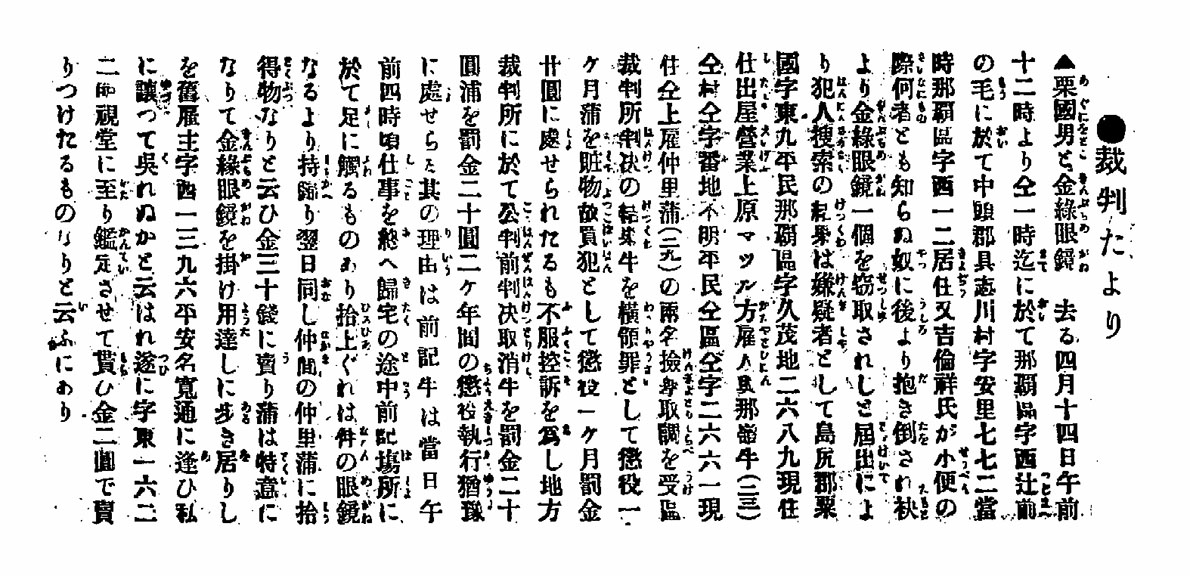 ●裁判だより
▲粟國男と金緣眼鏡　去る四月十四日午前
十二時より仝一時迄に於て那覇區字西辻前
の毛に於て中頭郡具志川村字安里七七二當
時那覇區字西一二居住又吉倫祥氏が小便の
際何者とも知らぬ奴に後より抱き倒され袂
より金緣眼鏡一個を窃取されしと屆出によ
り犯人捜索の結果は嫌疑者として島尻郡粟
國字東九平民那覇區字久茂地二六八九現住
仕出屋營業上原マツル方雇人與那嶺牛(二三)
仝村仝字番地不明平民仝區仝字二六六一現
住仝上雇仲里蒲(二九)の兩名撿擧取調を受區
裁判所判决の結果牛を横領罪として懲役一
ケ月蒲を賍物故買犯として懲役一ケ月罰金
廿圓に處せられたるも不服控訴を爲し地方
裁判所に於て公判前判决取消牛を罰金二十
圓浦を罰金二十圓二ケ年間の懲役執行猶豫
に處せらる其の理由は前記牛は當日午
前四時頃仕事を終へ歸宅の途中前記塲所に
於て足に觸るものあり拾上ぐれは件の眼鏡
なるより持歸り翌日同し仲間の仲里蒲に拾
得物なりと云ひ金三十錢に賣り蒲は特意に
なりて金緣眼鏡を掛け用達しに歩き居りし
を舊雇主字西一三九六平安名寬通に逢ひ私
に讓つて吳れぬかと云はれ遂に字東一六二
二師視堂に至り鑑定させて貰ひ金二圓で賣
りつけたるものなりと云ふにあり